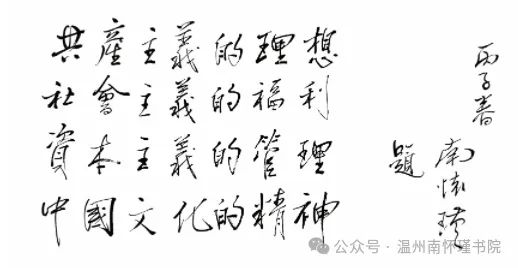 共產主義的理想
社會主義的福利
資本主義的管理
中國文化的精神
丙子春
南懷瑾
題
公众号 · 温州南怀瑾书院